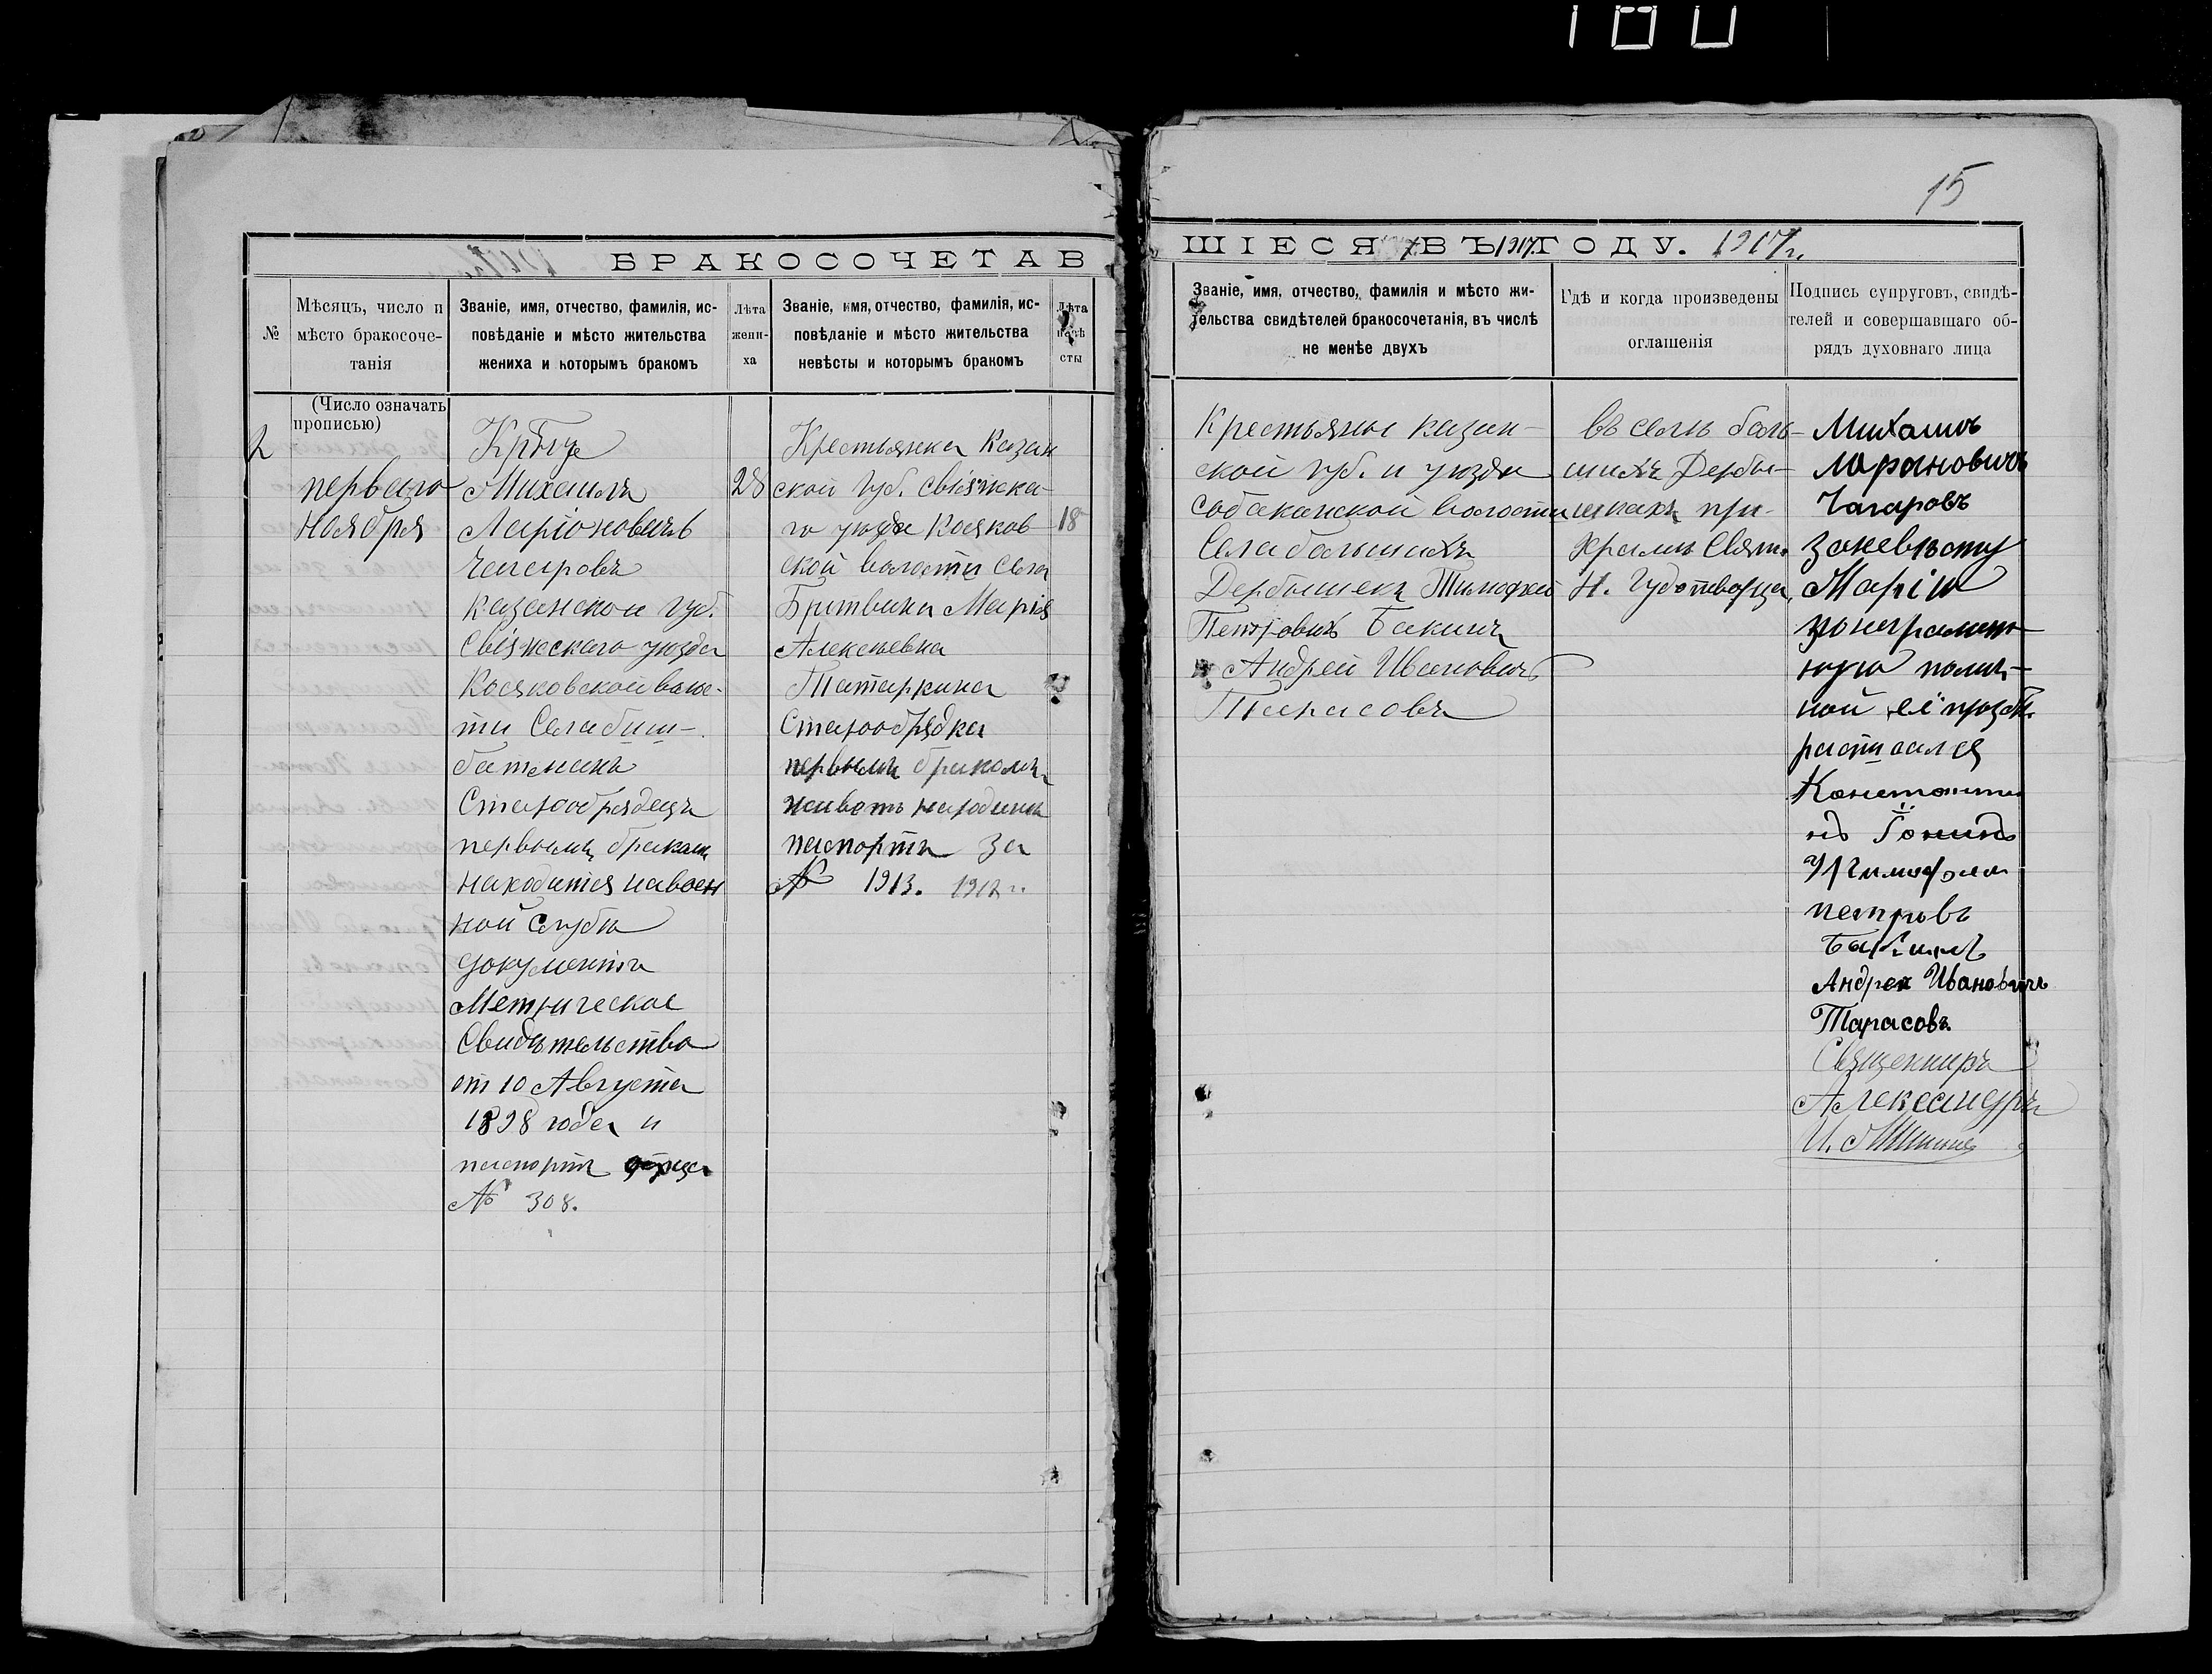 180
15
БРАКОСОЧЕТАВ
ШІЕСЯ ВЪ 1917 ГОДУ. 1917 г.
№
Мѣсяцъ, число и
мѣсто бракосоче-
танія
Званіе, имя, отчество, фамилія, ис-
повѣданіе и мѣсто жительства
жениха и которымъ бракомъ
Лѣта
жени-
ха
Званіе, имя, отчество, фамилія, ис-
повѣданіе и мѣсто жительства
невѣсты и которымъ бракомъ
Лѣта
невѣ
сты
Званіе, имя, отчество, фамилія и мѣсто жи-
тельства свидѣтелей бракосочетанія, въ числѣ
не менѣе двухъ
Гдѣ и когда произведены
оглашенія
Подпись супруговъ, свидѣ-
телей и совершавшаго об-
рядъ духовнаго лица
(Число означать
прописью)
2
перваго
ноября
Михаилъ
Ларіоновичъ
Чагаровъ
казанской губ.
Свіяжскаго уѣзда
Косяковской волос-
ти Села биш-
батманъ
Старообрядецъ
первымъ бракам
находится навоен
ной Слубѣ
документъ
Метрическое
Свидѣтельство
от 10 Августа
1898 года и
паспортъ отца
№ 308.
28
Крестьянка Казан
ской Губ. Свіяжска
го уѣзда Косяков
ской волости Села
Бритвина Марія
Алексѣевна
Татаркина
Старообрядка
первымъ бракомъ
животъ народини
паспортъ За
№ 1913. 1917 г.
18
Крестьяне казан-
ской губ. и уѣзда
Собакинской волости
Села большихъ
Дербышекъ Тимофей
Петровичъ Бакинъ
и Андрей Ивановичъ
Тарасовъ
въ селѣ боль-
шихъ Дербы-
шкахъ при
храмѣ Свят.
Н. Чудотворца,
Михаилъ
Ларионовичъ
Чагаровъ
заневѣсту
Марію
личной еі прозбѣ
расписался
Константи
нъ
Петровъ
Андрей Ивановичъ
Тарасовъ.
Священникъ
Александръ